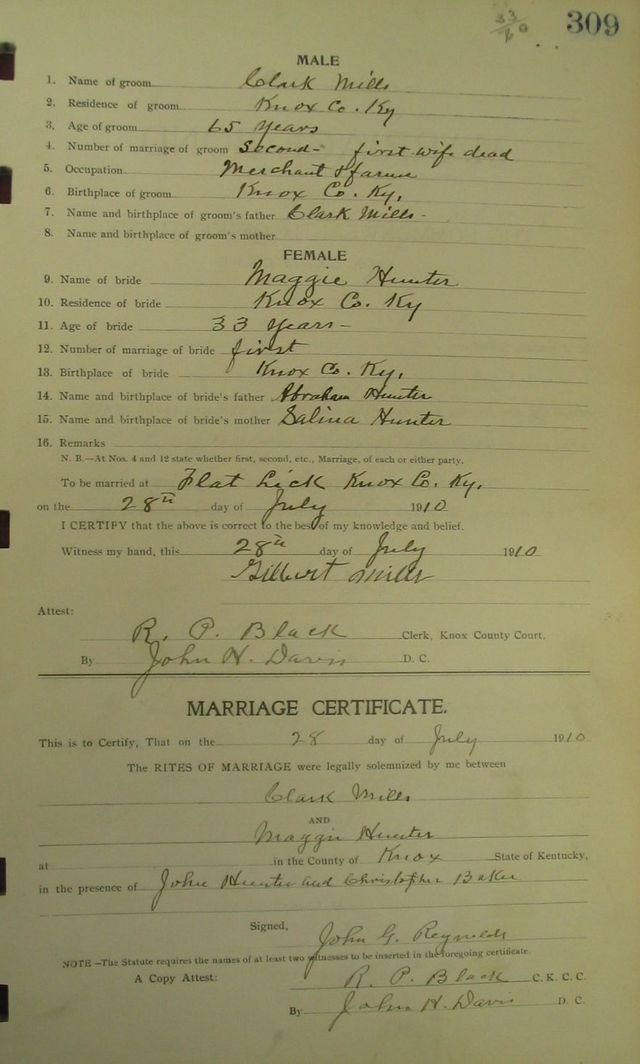 33/60 309
MALE
1. Name of groom Clark Mills
2. Residence of groom Knox Co. Ky
3. Age of groom 65 years
4. Number of marriage of groom Second- first wife dead
5. Occupation Merchant & farmer
6. Birthplace of groom Knox Co. Ky.
7. Name and birthplace of groom's father Clark Mills -
8. Name and birthplace of groom's mother
FEMALE
9. Name of bride Maggie Hunter
10. Residence of bride Knox Co. Ky
11. Age of bride 33 years -
12. Number of marriage of bride first
13. Birthplace of bride Knox Co. Ky.
14. Name and birthplace of bride's father Abraham Hunter
15. Name and birthplace of bride's mother Salina Hunter
16. Remarks
N. B.—At Nos. 4 and 12 state whether first, second, etc., Marriage, of each or either party.
To be married at Flat Lick Knox Co. Ky.
on the 28th day of July 1910
I CERTIFY that the above is correct to the best of my knowledge and belief.
Witness my hand, this 28th day of July 1910
Gilbert Mills
Attest:
R. P. Black Clerk, Knox County Court.
By John H. Davis D. C.
MARRIAGE CERTIFICATE.
This is to Certify, That on the 28 day of July 1910
The RITES OF MARRIAGE were legally solemnized by me between
Clark Mills
AND
Maggie Hunter
at in the County of Knox State of Kentucky,
in the presence of John Hunter and Christopher Baker
Signed,
John G. Reynolds
NOTE—The Statute requires the names of at least two witnesses to be inserted in the foregoing certificate.
A Copy Attest: R. P. Black C. K. C. C.
By John H. Davis D. C.